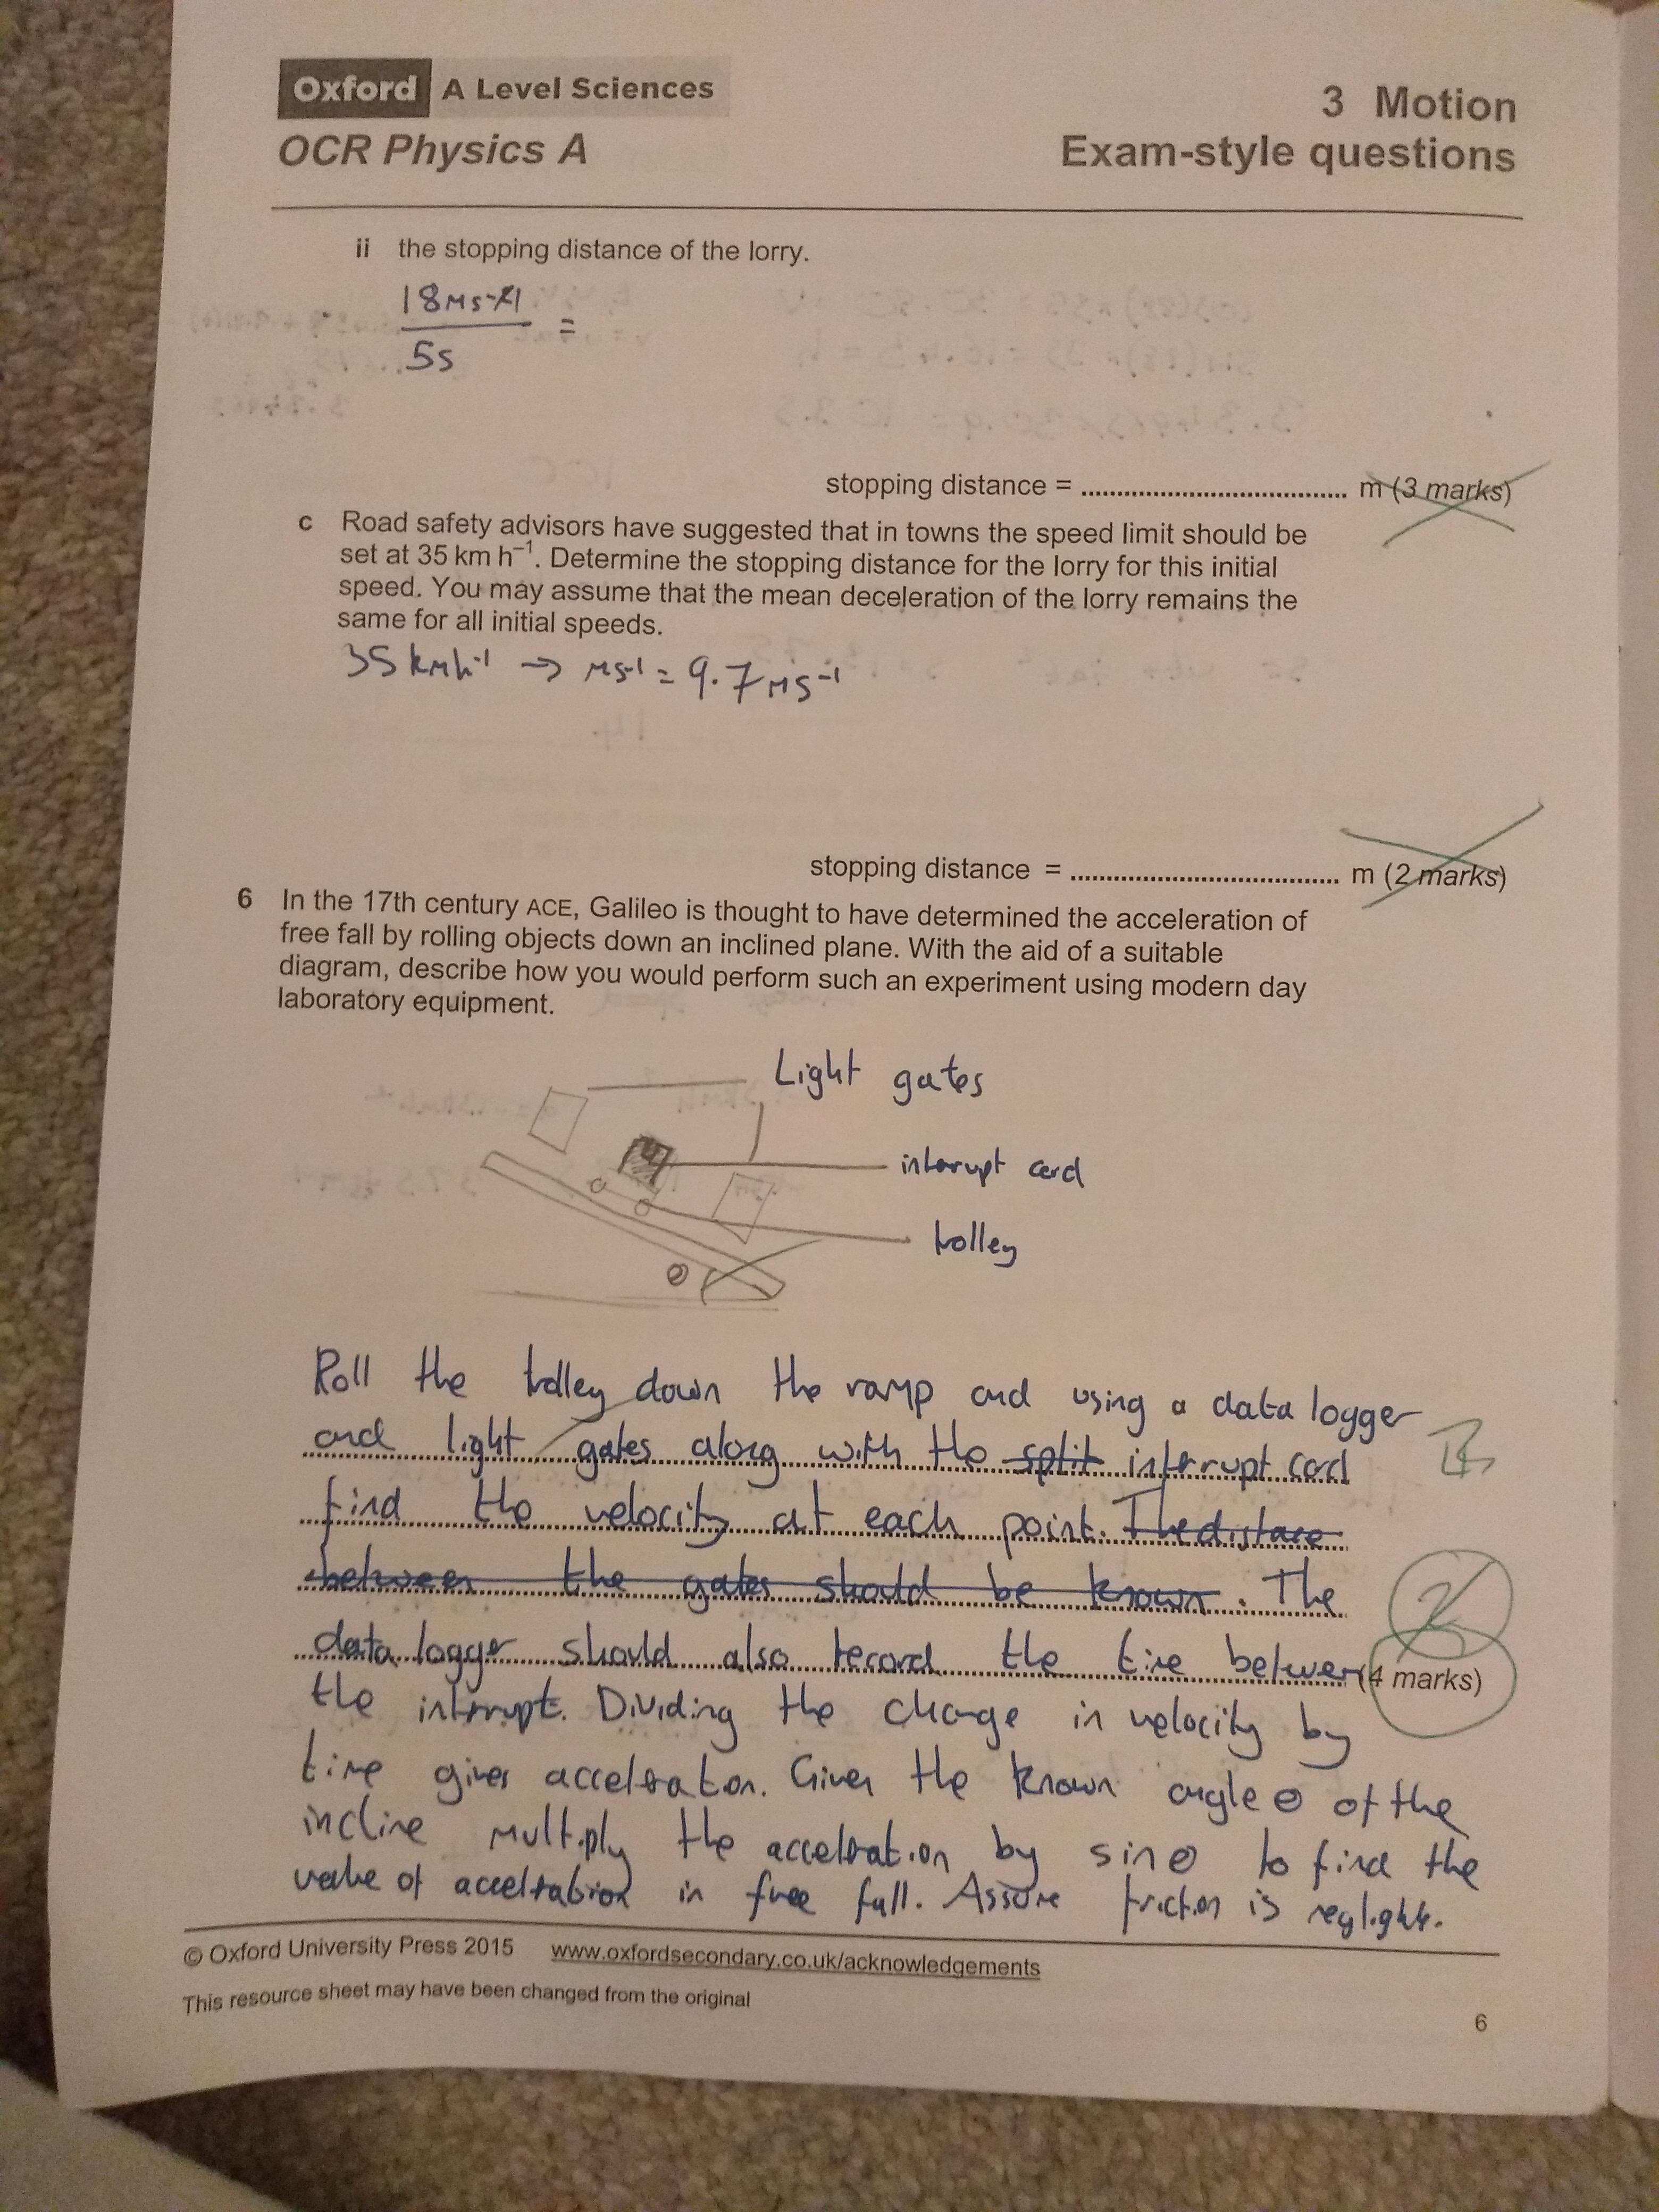 Oxford A Level Sciences
OCR Physics A
3 Motion
Exam-style questions
ii the stopping distance of the lorry.
18ms-1
5s
=
stopping distance = ........................ m (3 marks)
c Road safety advisors have suggested that in towns the speed limit should be
set at 35 km h⁻¹. Determine the stopping distance for the lorry for this initial
speed. You may assume that the mean deceleration of the lorry remains the
same for all initial speeds.
35 kmh⁻¹ → ms⁻¹ = 9.7ms⁻¹
stopping distance = ........................ m (2 marks)
6 In the 17th century ACE, Galileo is thought to have determined the acceleration of
free fall by rolling objects down an inclined plane. With the aid of a suitable
diagram, describe how you would perform such an experiment using modern day
laboratory equipment.
Light gates
interrupt card
trolley
θ
Roll the trolley down the ramp and using a data logger
and light gates along with the split interrupt card
find the velocity at each point. The distace
between the gates should be known. The
data logger should also record the time between (4 marks)
the interrupt. Dividing the change in velocity by
time gives acceleration. Given the known angle θ of the
incline multiply the acceleration by sin θ to find the
value of acceleration in free fall. Assume friction is negligible.
© Oxford University Press 2015 www.oxfordsecondary.co.uk/acknowledgements
This resource sheet may have been changed from the original
6